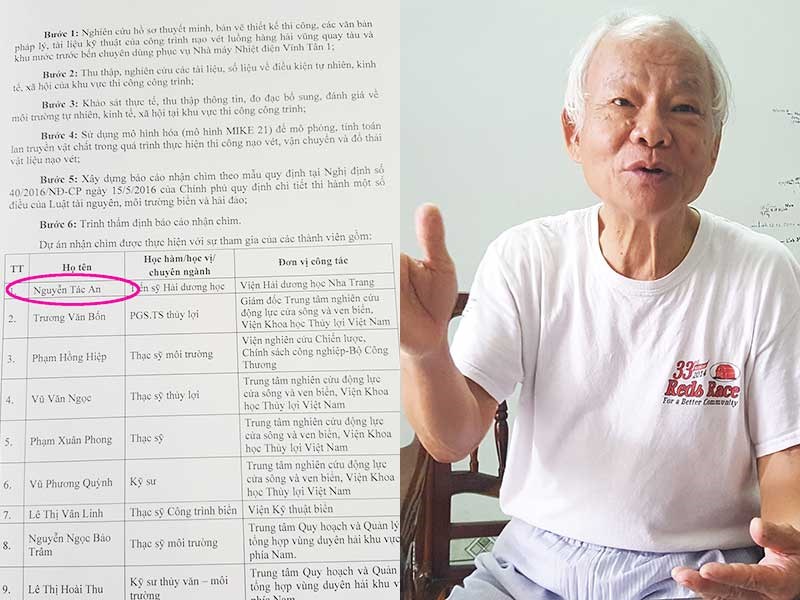 Bước 1: Nghiên cứu hồ sơ thuyết minh, bản vẽ thiết kế thi công, các văn bản
pháp lý, tài liệu kỹ thuật của công trình nạo vét luồng hàng hải vũng quay tàu và
khu nước trước bến chuyên dùng phục vụ Nhà máy Nhiệt điện Vĩnh Tân 1;
Bước 2: Thu thập, nghiên cứu các tài liệu, số liệu về điều kiện tự nhiên, kinh
tế, xã hội của khu vực thi công công trình;
Bước 3: Khảo sát thực tế, thu thập thông tin, đo đạc bổ sung, đánh giá về
môi trường tự nhiên, kinh tế, xã hội tại khu vực thi công công trình;
Bước 4: Sử dụng mô hình hóa (mô hình MIKE 21) để mô phỏng, tính toán
lan truyền vật chất trong quá trình thực hiện thi công nạo vét, vận chuyển và đổ thải
vật liệu nạo vét;
Bước 5: Xây dựng báo cáo nhận chìm theo mẫu quy định tại Nghị định số
40/2016/NĐ-CP ngày 15/5/2016 của Chính phủ quy định chi tiết thi hành một số
điều của Luật tài nguyên, môi trường biển và hải đảo;
Bước 6: Trình thẩm định báo cáo nhận chìm.
Dự án nhận chìm được thực hiện với sự tham gia của các thành viên gồm:
TT Họ tên Học hàm/học vị/ chuyên ngành Đơn vị công tác
Nguyễn Tác An sỹ Hải dương học Viện Hải dương học Nha Trang
2. Trương Văn Bốn PGS.TS thủy lợi Giám đốc Trung tâm nghiên cứu
động lực cửa sông và ven biển,
Viện Khoa học Thủy lợi Việt Nam
3. Phạm Hồng Hiệp Thạc sỹ môi trường Viện nghiên cứu Chiến lược,
Chính sách công nghiệp-Bộ Công
Thương
4. Vũ Văn Ngọc Thạc sỹ thủy lợi Trung tâm nghiên cứu động lực
cửa sông và ven biển, Viện Khoa
học Thủy lợi Việt Nam
5. Phạm Xuân Phong Thạc sỹ Trung tâm nghiên cứu động lực
cửa sông và ven biển, Viện Khoa
học Thủy lợi Việt Nam
6. Vũ Phương Quỳnh Kỹ sư Trung tâm nghiên cứu động lực
cửa sông và ven biển, Viện Khoa
học Thủy lợi Việt Nam
7. Lê Thị Vân Linh Thạc sỹ Công trình biển Viện Kỹ thuật biển
8. Nguyễn Ngọc Bảo
Trâm Thạc sỹ môi trường Trung tâm Quy hoạch và Quản lý
tổng hợp vùng duyên hải khu vực
phía Nam.
9. Lê Thị Hoài Thu Kỹ sư thủy văn – môi
trường Trung tâm Quy hoạch và Quản
tổng hợp vùng duyên hải khu
phía Nam
33
2014
Reds Race
For a Better Community